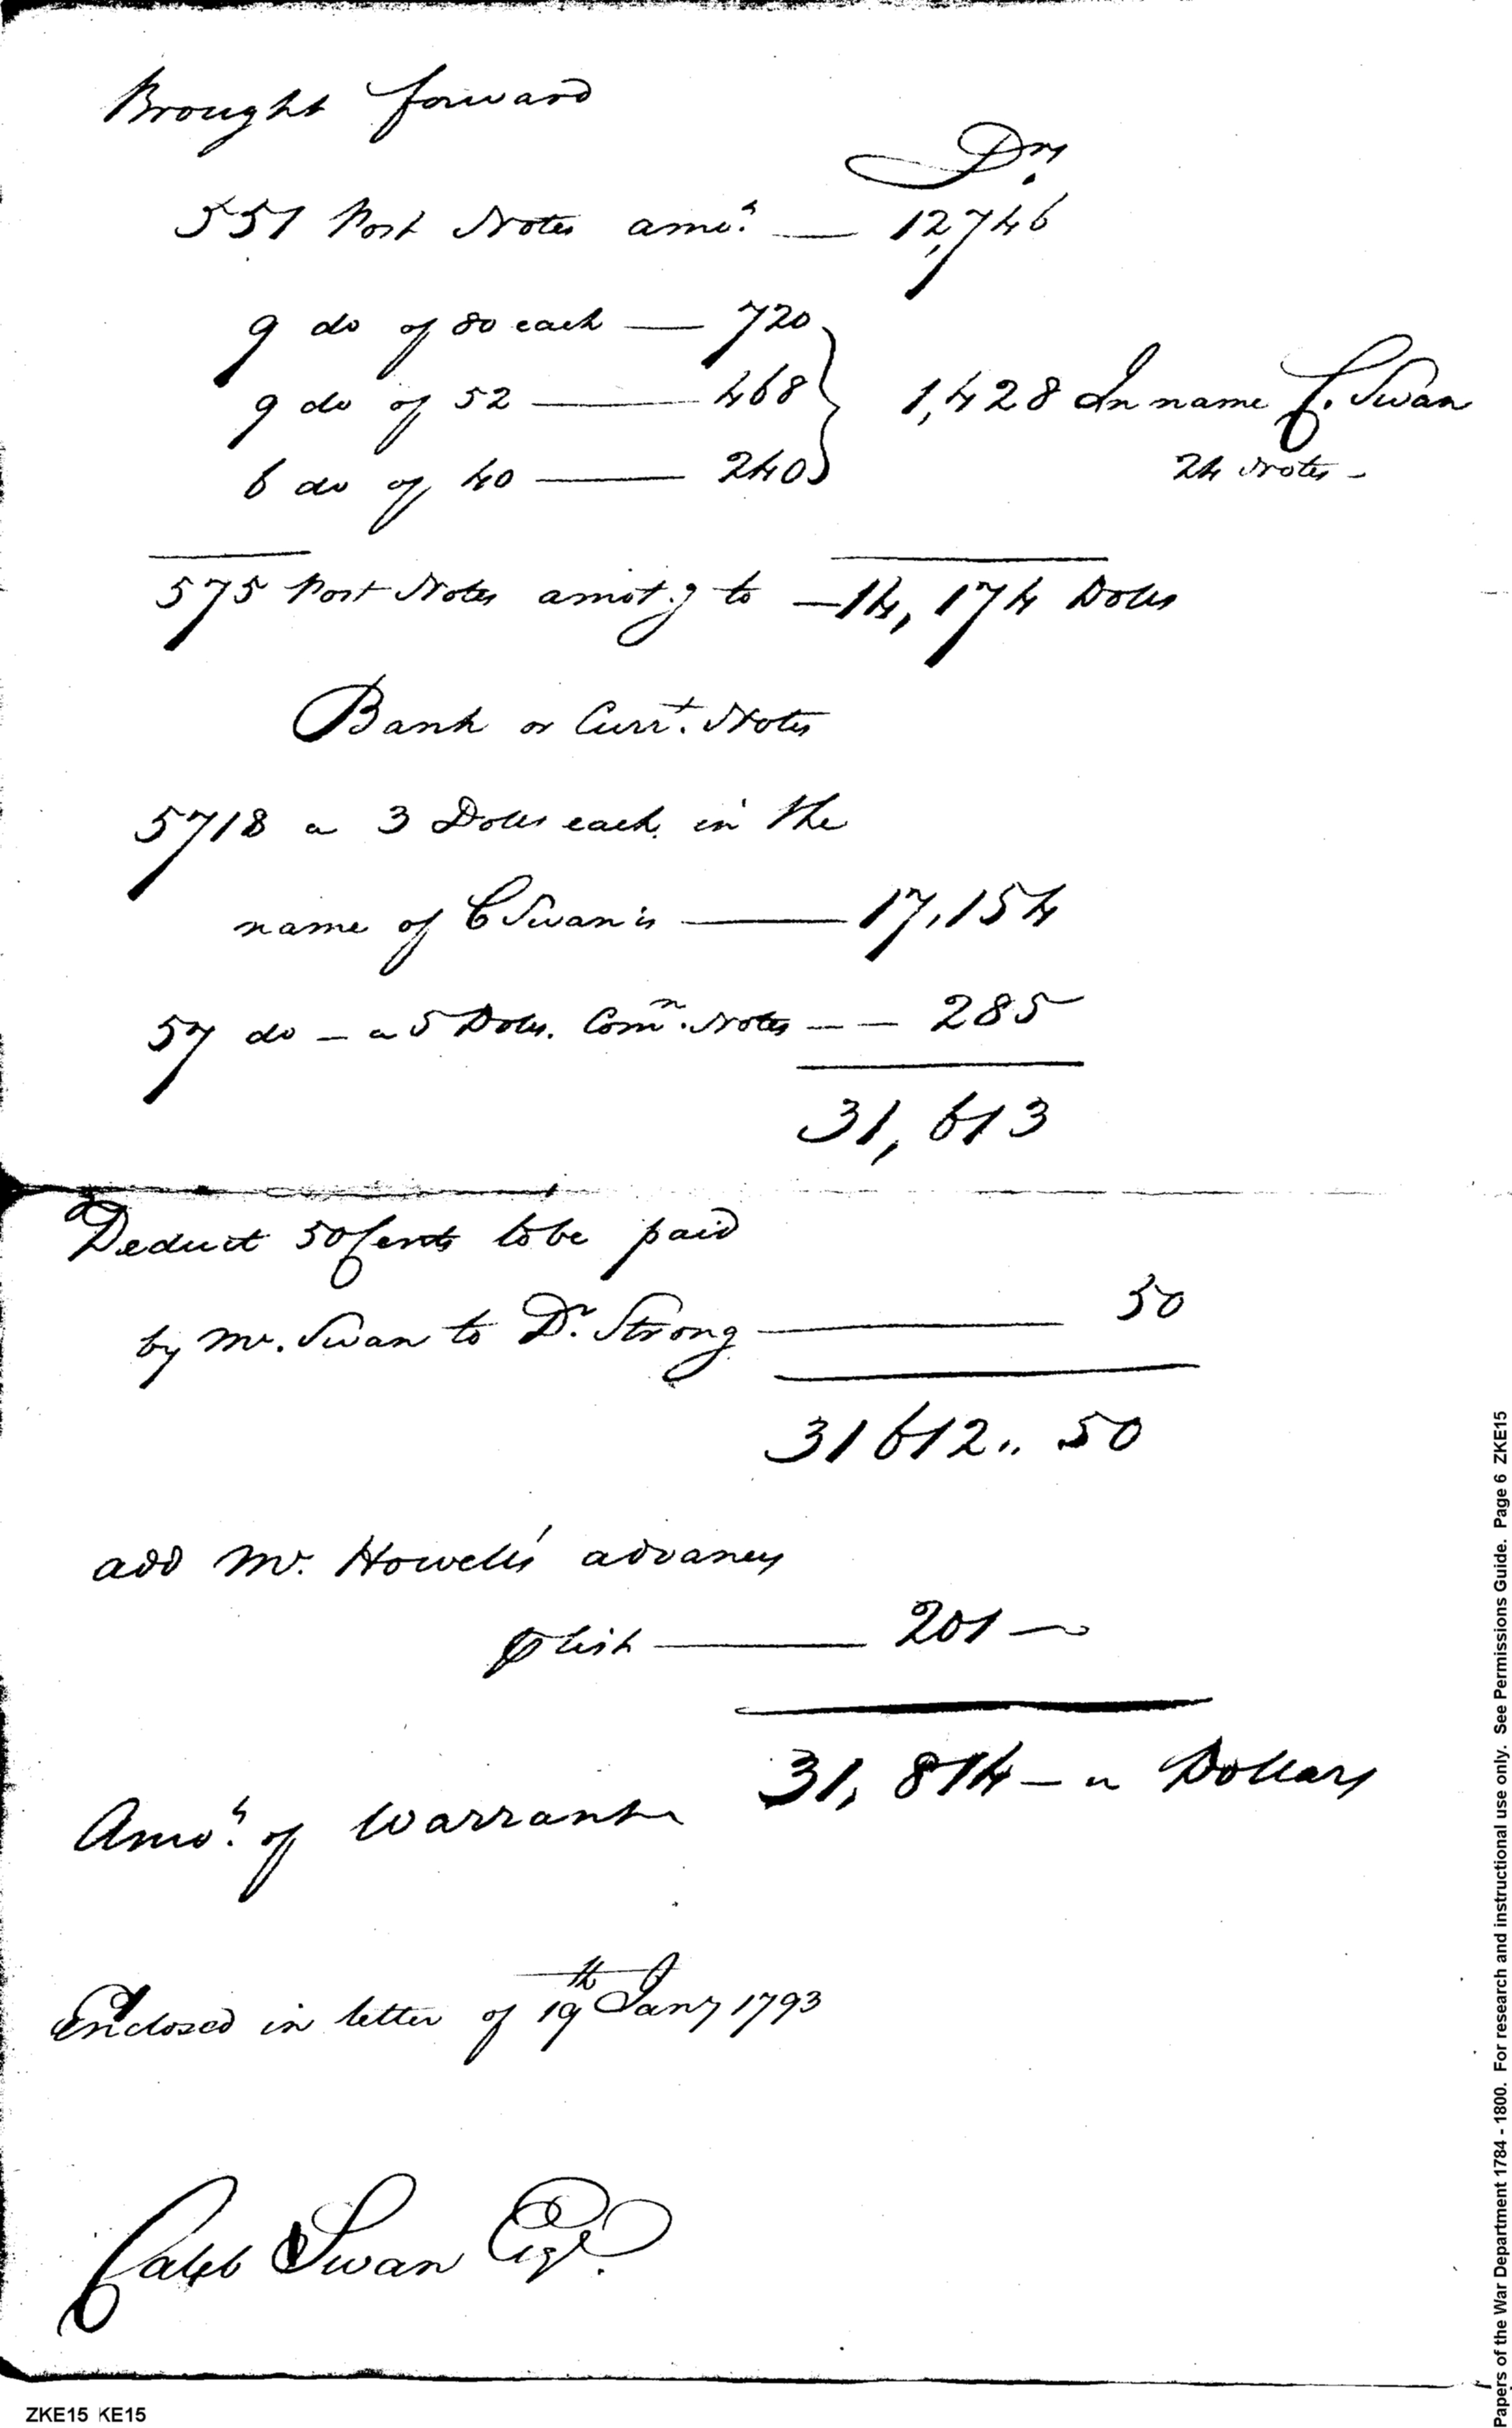 Brought forward
Drs
551 Post Notes amot. — 12,746
9 do of 80 each — 720
9 do of 52 — 468 } 1,428 In name C. Swan
6 do of 40 — 240 24 Notes -
575 Post Notes amotg to — 14,174 Dolls
Bank or Currt. Notes
5718 a 3 Dolls each in the
name of C Swan is — 17,154
57 do — a 5 Dolls. Comn. Notes — — 285
31,613
Deduct 50 Cents to be paid
by Mr. Swan to Dr. Strong — 50
31612,, 50
add Mr. Howells' advances
⅌ list — 201 —
31,814 — a Dollars
Amot. of Warrant
Enclosed in letter of 19th Jany 1793
Caleb Swan Esqr.
Papers of the War Department 1784 - 1800. For research and instructional use only. See Permissions Guide. Page 6 ZKE15
ZKE15 KE15